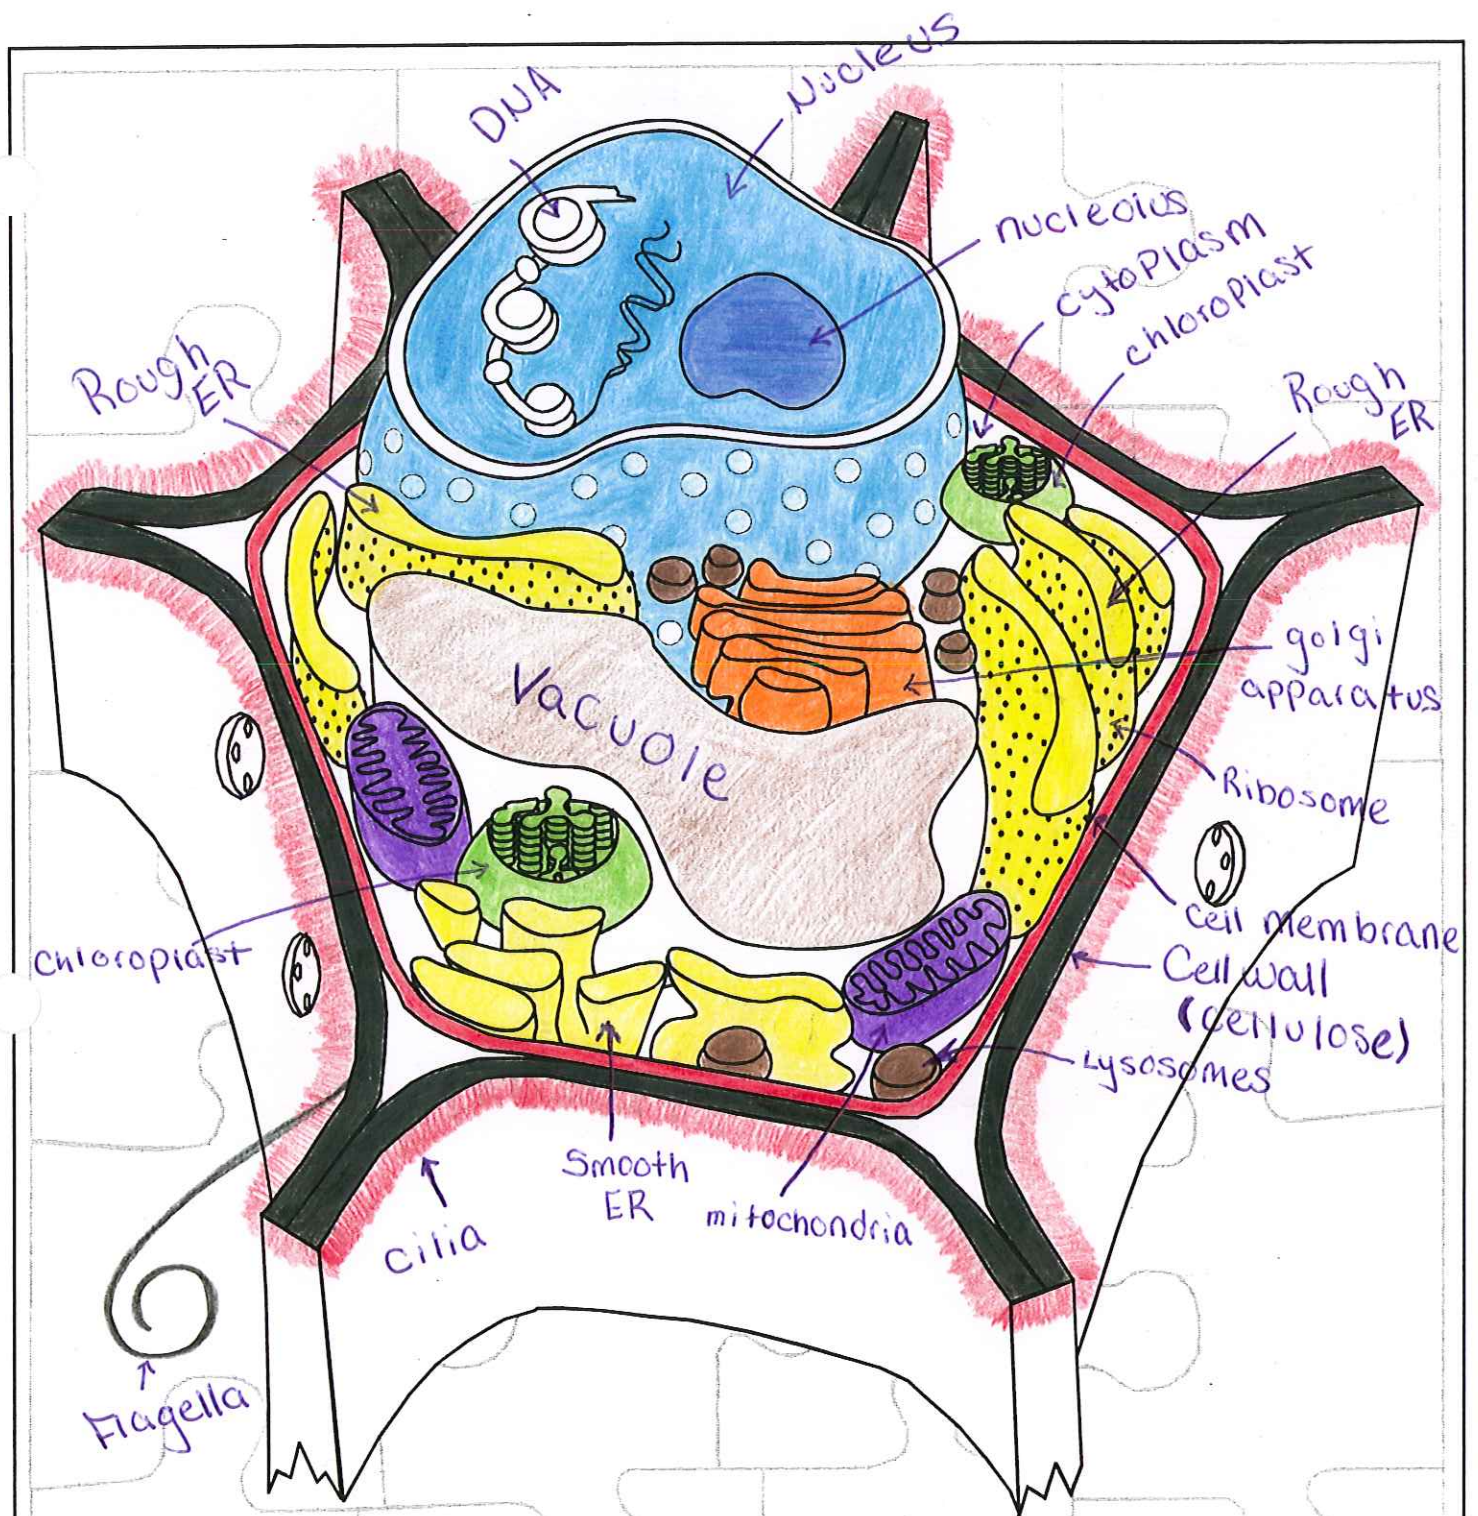 DNA
Nucleus
nucleolus
cytoplasm
chloroplast
Rough
ER
Rough
ER
golgi
apparatus
Vacuole
Ribosome
chloroplast
cell membrane
Cell wall
(cellulose)
Lysosomes
Smooth
ER
mitochondria
cilia
Flagella